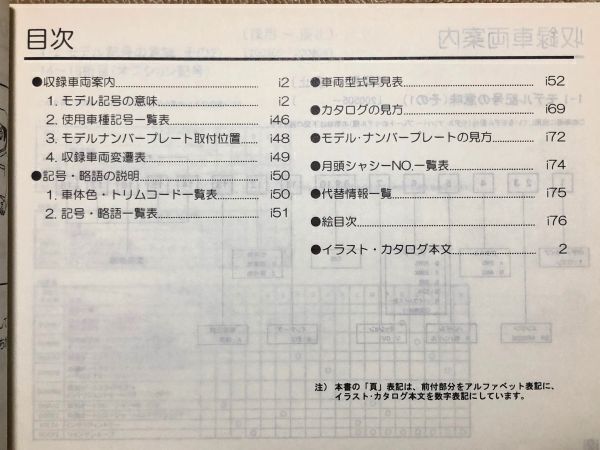 目次
●収録車両案内 i2
1. モデル記号の意味 i2
2. 使用車種記号一覧表 i46
3. モデルナンバープレート取付位置 i48
4. 収録車両変遷表 i49
●記号・略語の説明 i50
1. 車体色・トリムコード一覧表 i50
2. 記号・略語一覧表 i51
●車両型式早見表 i52
●カタログの見方 i69
●モデル・ナンバープレートの見方 i72
●月頭シャシーNO.一覧表 i74
●代替情報一覧 i75
●絵目次 i76
●イラスト・カタログ本文 2
注） 本書の「頁」表記は、前付部分をアルファベット表記に、
イラスト・カタログ本文を数字表記にしています。